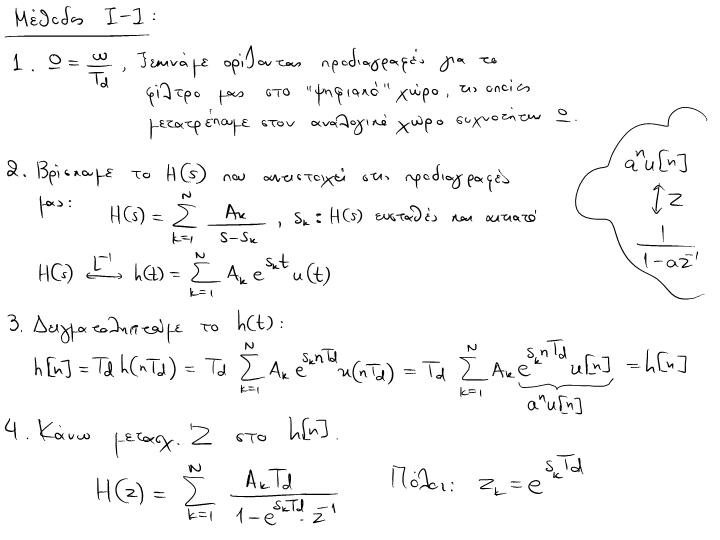 Μέθοδος I-I :
1. Ω = ω/T_d , Ξεκινάμε ορίζοντας προδιαγραφές για το
φίλτρο μας στο "ψηφιακό" χώρο, τις οποίες
μετατρέπουμε στον αναλογικό χώρο συχνοτήτων Ω.
2. Βρίσκουμε το H(s) που αντιστοιχεί στις προδιαγραφές
μας: H(s) = Σ_{k=1}^{N} A_k/(s-s_k) , s_k : H(s) ευσταθές και αιτιατό
H(s) ⟷^{L^{-1}} h(t) = Σ_{k=1}^{N} A_k e^{s_k t} u(t)
a^n u[n]
↕ Z
1/(1-az^{-1})
3. Δειγματοληπτούμε το h(t) :
h[n] = T_d h(nT_d) = T_d Σ_{k=1}^{N} A_k e^{s_k nT_d} u(nT_d) = T_d Σ_{k=1}^{N} A_k e^{s_k nT_d} u[n] = h[n]
a^n u[n]
4. Κάνω μετασχ. Z στο h[n].
H(z) = Σ_{k=1}^{N} A_k T_d/(1-e^{s_k T_d}·z^{-1}) Πόλοι: z_k = e^{s_k T_d}